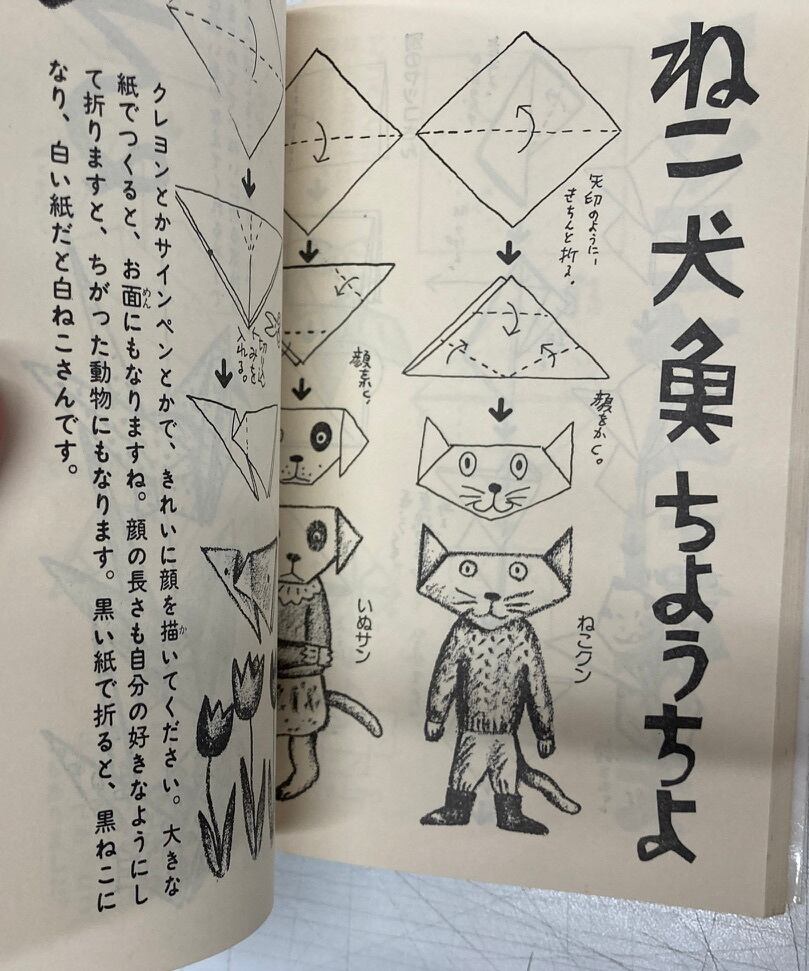 ねこ 犬 魚 ちようちよ
矢印のように
きちんと折る。
顔をかく。
ねこクン
いぬサン
入れる。
クレヨンとかサインペンとかで、きれいに顔を描いてください。大きな
紙でつくると、お面にもなりますね。顔の長さも自分の好きなようにし
て折りますと、ちがった動物にもなります。黒い紙で折ると、黒ねこに
なり、白い紙だと白ねこさんです。